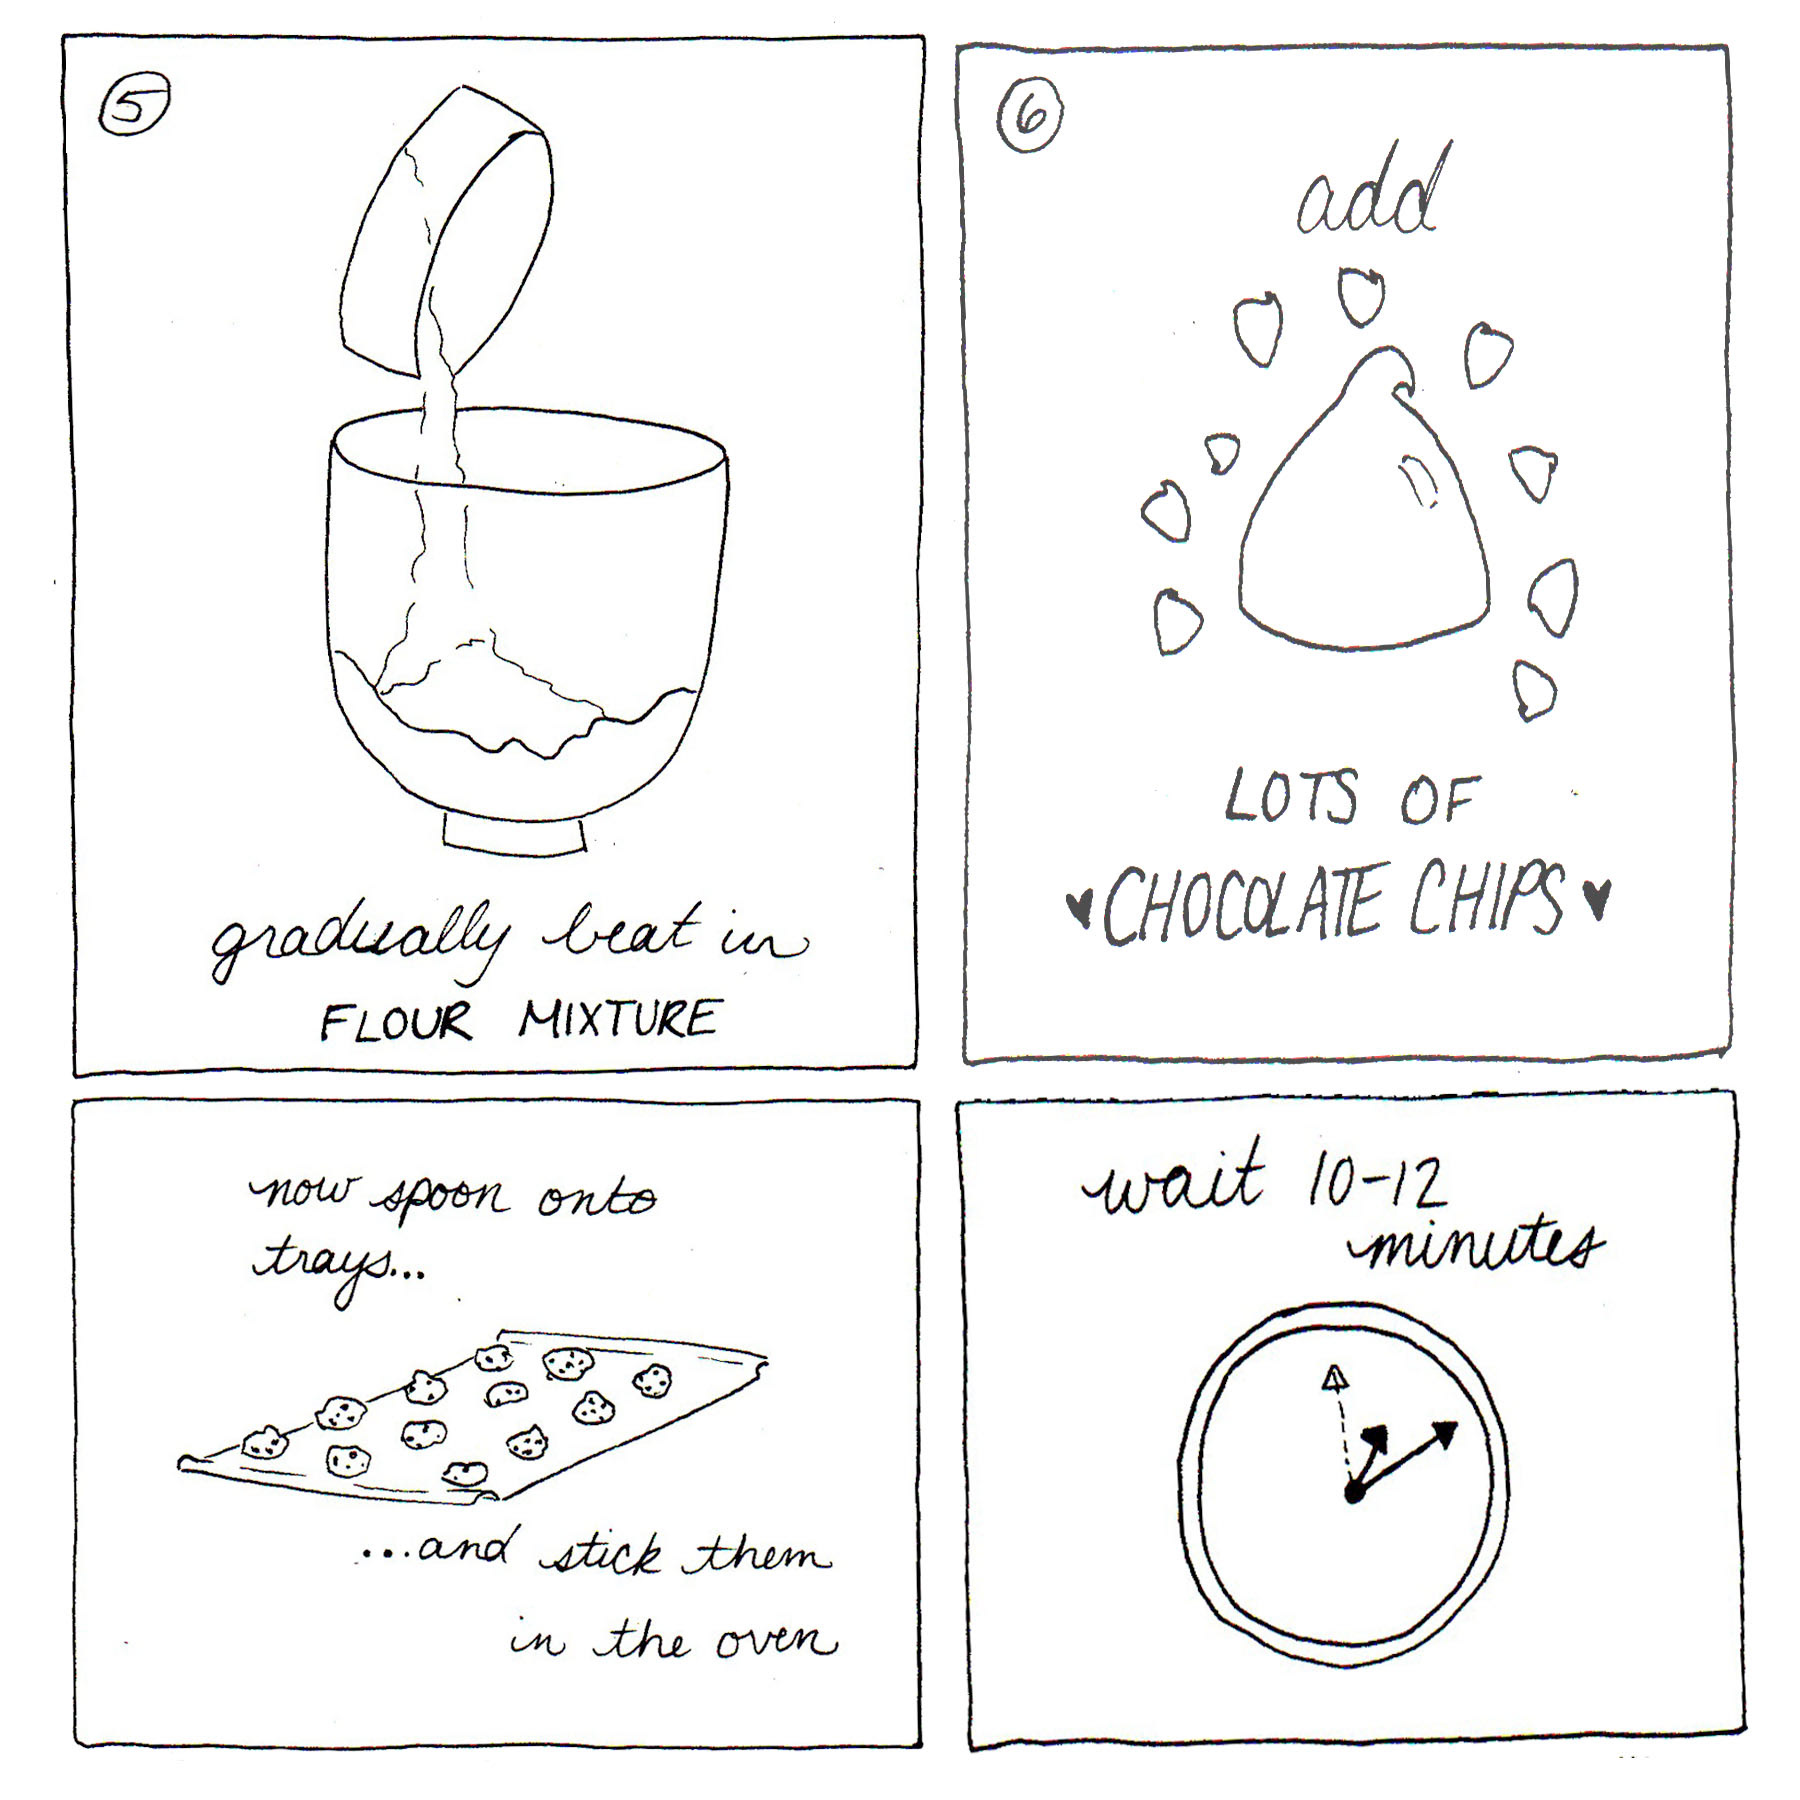 5
gradually beat in
FLOUR MIXTURE
6
add
LOTS OF
♥CHOCOLATE CHIPS♥
now spoon onto
trays...
...and stick them
in the oven
wait 10-12
minutes